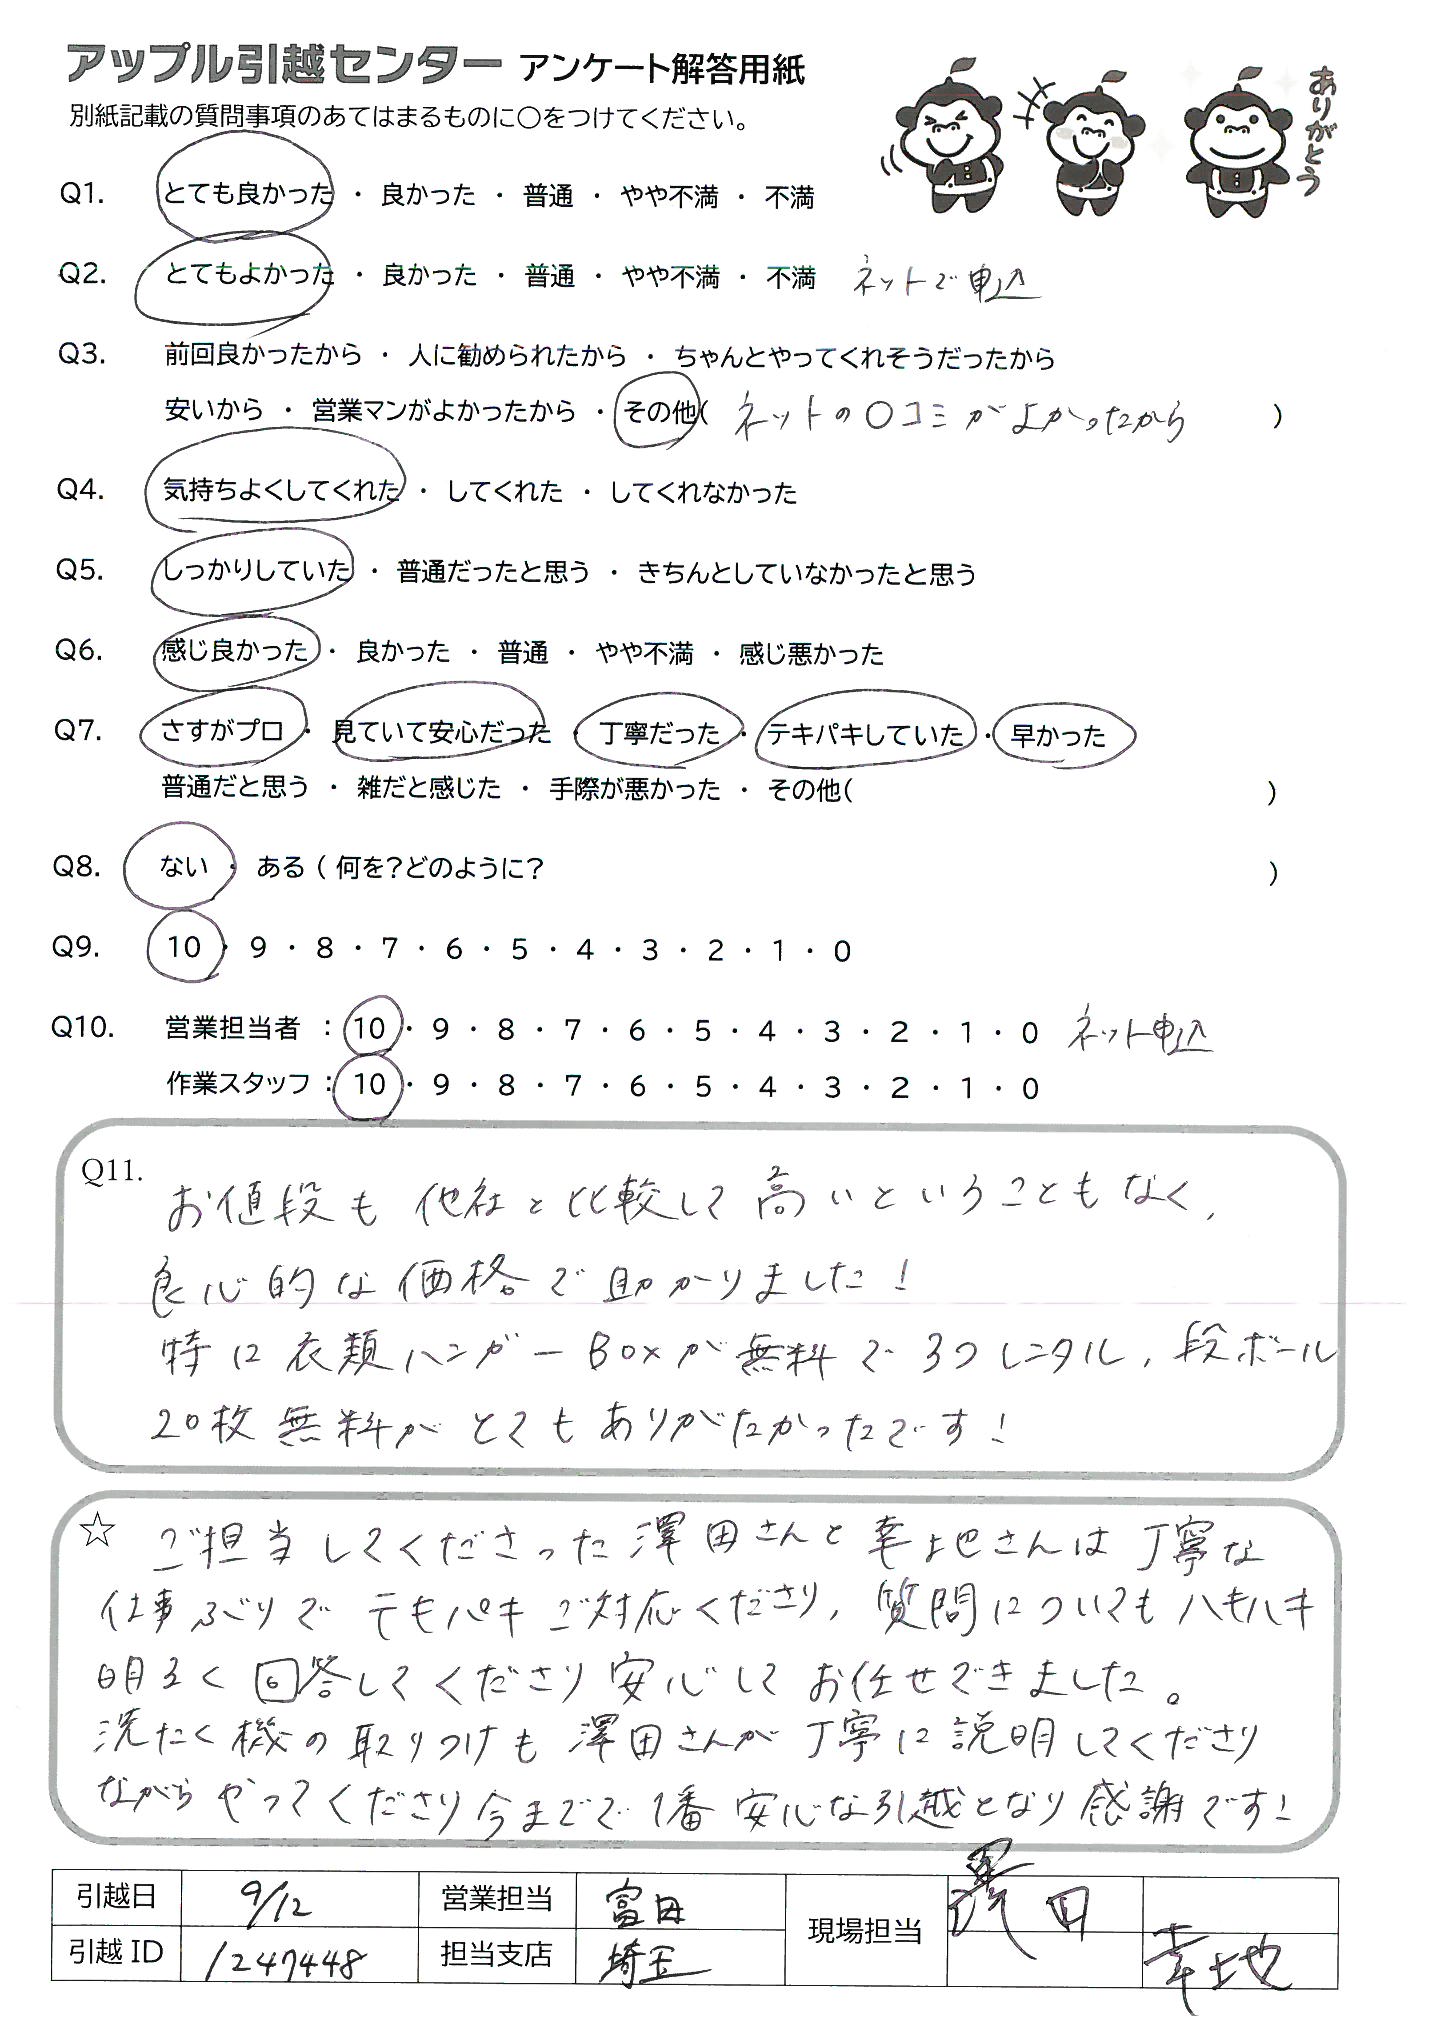 アップル引越センター アンケート解答用紙
ありがとう
別紙記載の質問事項のあてはまるものに〇をつけてください。
Q1. とても良かった ・ 良かった ・ 普通 ・ やや不満 ・ 不満
Q2. とてもよかった ・ 良かった ・ 普通 ・ やや不満 ・ 不満 ネットで申込
Q3. 前回良かったから ・ 人に勧められたから ・ ちゃんとやってくれそうだったから
安いから ・ 営業マンがよかったから ・ その他( ネットの〇コミがよかったから )
Q4. 気持ちよくしてくれた ・ してくれた ・ してくれなかった
Q5. しっかりしていた ・ 普通だったと思う ・ きちんとしていなかったと思う
Q6. 感じ良かった ・ 良かった ・ 普通 ・ やや不満 ・ 感じ悪かった
Q7. さすがプロ ・ 見ていて安心だった ・ 丁寧だった ・ テキパキしていた ・ 早かった
普通だと思う ・ 雑だと感じた ・ 手際が悪かった ・ その他( )
Q8. ない ・ ある ( 何を?どのように? )
Q9. 10 ・ 9 ・ 8 ・ 7 ・ 6 ・ 5 ・ 4 ・ 3 ・ 2 ・ 1 ・ 0
Q10. 営業担当者 : 10 ・ 9 ・ 8 ・ 7 ・ 6 ・ 5 ・ 4 ・ 3 ・ 2 ・ 1 ・ 0 ネット申込
作業スタッフ : 10 ・ 9 ・ 8 ・ 7 ・ 6 ・ 5 ・ 4 ・ 3 ・ 2 ・ 1 ・ 0
Q11. お値段も他社と比較して高いということもなく、
良心的な価格で助かりました!
特に衣類ハンガーBoxが無料で3つレンタル、段ボール
20枚無料がとてもありがたかったです!
☆ ご担当してくださった澤田さんと幸地さんは丁寧な
仕事ぶりでテキパキご対応くださり、質問についてもハキハキ
明るく回答してくださり安心してお任せできました。
洗たく機の取りつけも澤田さんが丁寧に説明してくださり
ながらやってくださり今までで1番安心な引越となり感謝です!
引越日 9/12 営業担当 富田 現場担当 澤田
引越ID 1247448 担当支店 埼玉 幸地